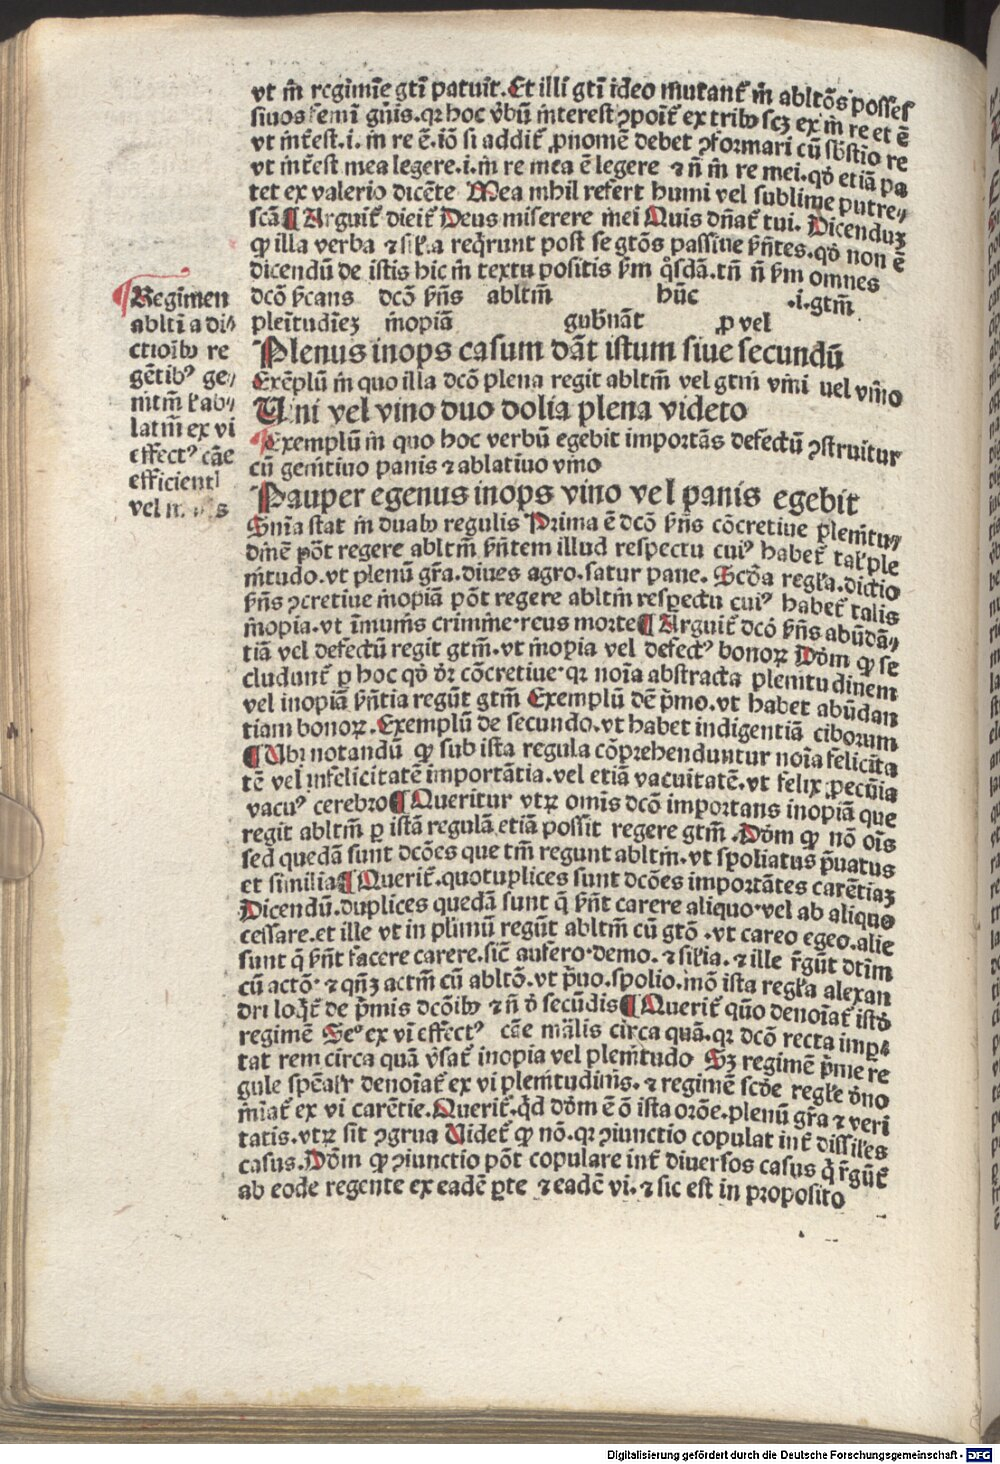 vt in̄ regimīe gtī patuit. Et illī gtī ideo mutant᷑ in̄ abltōs posses
siuos femī gn̄is. qꝛ hoc v̄bū interest ꝯpoit᷑ ex tribꝰ scꝫ ex in̄ re et ē
vt int᷑est .i. in̄ re ē. iō si addit᷑ ꝓnomē debet ꝯformari cū sb̄stīo re
vt int᷑est mea legere .i. in̄ re mea ē legere ⁊ n̄ in̄ re mei. qd̓ etiā pa
tet ex valerio dicēte Mea nihil refert humi vel sublime putre⸗
scā ¶ Arguit᷑ dicit᷑ Deus miserere mei Quis dn̄at᷑ tui. Dicenduꝫ
ꝙ illa verba ⁊ sil̓ia req̓runt post se gtōs passiue p̄n̄tes. qd̓ non ē
dicendū de istis hic in̄ textu positis p̄m q̓sdā. tn̄ n̄ p̄m omnes
dcō p̄cans dcō p̄n̄s abltm̄ hūc .i. gtm̄
¶ Regimen
abltī a di⸗
ctioībꝰ re
gētibꝰ ge⸗
nitm̄ l̓ ab⸗
latm̄ ex vi
effectꝰ cāe
efficienti
vel
pleītudīeꝫ inopiā gub̓nāt ꝓ vel
Plenus inops casum dāt istum siue secundū
Exēplū in̄ quo illa dcō plena regit abltm̄ vel gtm̄ vini uel vino
Uini vel vino duo dolia plena videto
¶ Exemplū in̄ quo hoc verbū egebit importās defectū ꝯstruitur
cū genitiuo panis ⁊ ablatiuo vino
Pauper egenus inops vino vel panis egebit
Snīa stat in̄ duabꝰ regulis Prima ē dcō p̄n̄s cōcretiue plenitu⸗
dinē pōt regere abltm̄ p̄n̄tem illud respectu cuiꝰ habet᷑ tal̓ ple
nitudo. vt plenū gr̄a. diues agro. satur pane. Scd̓a regl̓a. dictio
p̄n̄s ꝯcretiue inopiā pōt regere abltm̄ respectu cuiꝰ habet᷑ talis
inopia. vt īmunis crimine. reus morte ¶ Arguit᷑ dcō p̄n̄s abūdā⸗
tiā vel defectū regit gtm̄. vt inopia vel defectꝰ bonoꝝ Dōm ꝙ se
cludunt᷑ ꝑ hoc qd̓ dr̄ cōcretiue. qꝛ noīa abstracta plenitudinem
vel inopiā p̄n̄tia regūt gtm̄ Exemplū dē p̄mo. vt habet abūdan
tiam bonoꝝ. Exemplū de secundo. vt habet indigentiā ciborum
¶ Ubi notandū ꝙ sub ista regula cōprehenduntur noīa felicita
tē vel infelicitatē importātia. vel etiā vacuitatē. vt felix pecūia
vacuꝰ cerebro ¶ Queritur vtꝝ omīs dcō importans inopiā que
regit abltm̄ ꝑ istā regulā etiā possit regere gtm̄. Dōm ꝙ nō oīs
sed quedā sunt dcōes que tm̄ regunt abltm̄. vt spoliatus p̄uatus
et similia ¶ Querit᷑. quotuplices sunt dcōes importātes carētiaꝫ
Dicendū. duplices quedā sunt q̄ p̄n̄t carere aliquo. vel ab aliquo
cessare. et ille vt in plimū regūt abltm̄ cū gtō. vt careo egeo. alie
sunt q̄ p̄n̄t facere carere. sic̄ aufero. demo. ⁊ sil̓ia. ⁊ ille r̄gūt dtim̄
cū actō. ⁊ qn̄ꝫ actm̄ cū abltō. vt p̄uo. spolio. mō ista regl̓a alexan
dri loq̓t᷑ de p̄mis dcōibꝰ ⁊ n̄ d̓ secūdis ¶ Querit᷑ quō denoīat᷑ istd̓
regimē Se° ex vi effectꝰ cāe māl̓is circa quā. qꝛ dcō recta impꝛ⸗
tat rem circa quā v̓sat᷑ inopia vel plenitudo Sꝫ regimē p̄me re
gule spēal̓r denoīat᷑ ex vi plenitudinis. ⁊ regimē scd̓e regl̓e d̓no
minat᷑ ex vi carētie. Querit᷑. qd̓ dōm ē d̓ ista orōe. plenū gr̄a ⁊ veri
tatis. vtꝝ sit ꝯgrua Uidet᷑ ꝙ nō. qꝛ ꝯiunctio copulat int᷑ dissil̓es
casus. Dōm ꝙ ꝯiunctio pōt copulare int᷑ diuersos casus q̄ r̄gūt᷑
ab eodē regente ex eadē ꝑte ⁊ eadē vi. ⁊ sic est in proposito
Digitalisierung gefördert durch die Deutsche Forschungsgemeinschaft - DFG